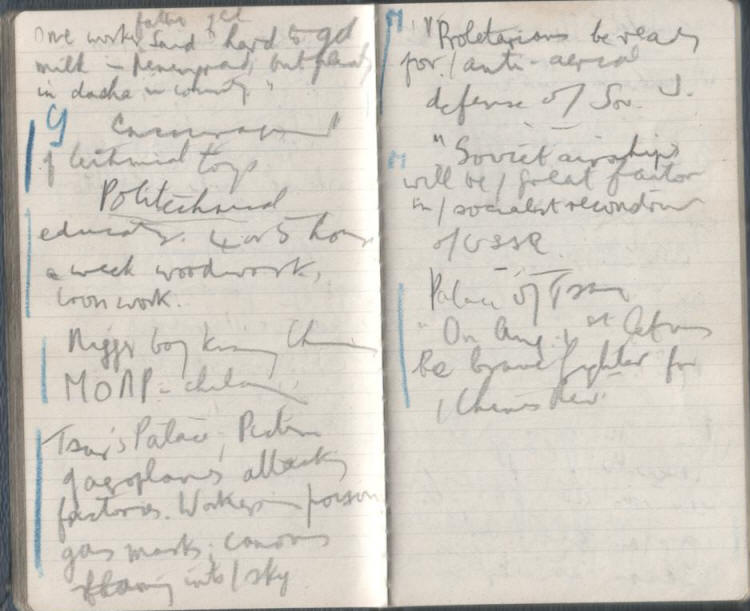 father get
One worker said "hard to get
milk in Leningrad, but plenty
in dacha in country"
Encouragement
of technical toys
Politechnical
education. 4 or 5 hours
a week woodwork,
iron work.
Nigger boy kissing Chinese
МОПР - children
Tsar's Palace, Picture
of aeroplanes attacking
factories. Workers in poison
gas masks; cannons
into / sky
M. "Proletarians be ready
for / anti-aerial
defense of / Sov. U.
M "Soviet airships
will be / great factor
in / socialist reconstruction
of USSR.
Palace of Tsar
"On Aug. 1st let us
be brave fighter for
/ Chinese Rev."